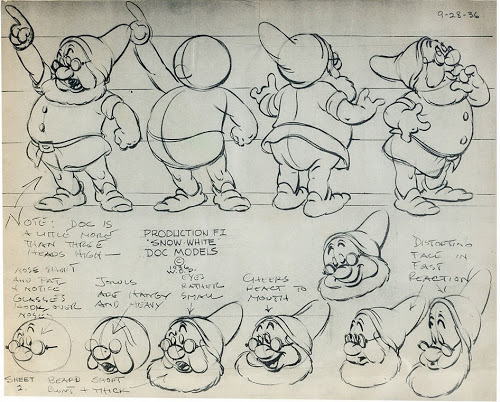 9-28-36
NOTE: DOC IS
A LITTLE MORE
THAN THREE
HEADS HIGH—
PRODUCTION FI
"SNOW-WHITE"
DOC MODELS
©
NOSE SHORT
AND FAT
NOTICE
GLASSES
HOOK OVER
JOWLS
ARE HEAVY
AND HEAVY
EYES
RATHER
SMALL
CHEEKS
REACT TO
MOUTH
DISTORTING
FACE IN
FAST
REACTION
SHEET
2.
BEARD SHORT
BLUNT + THICK